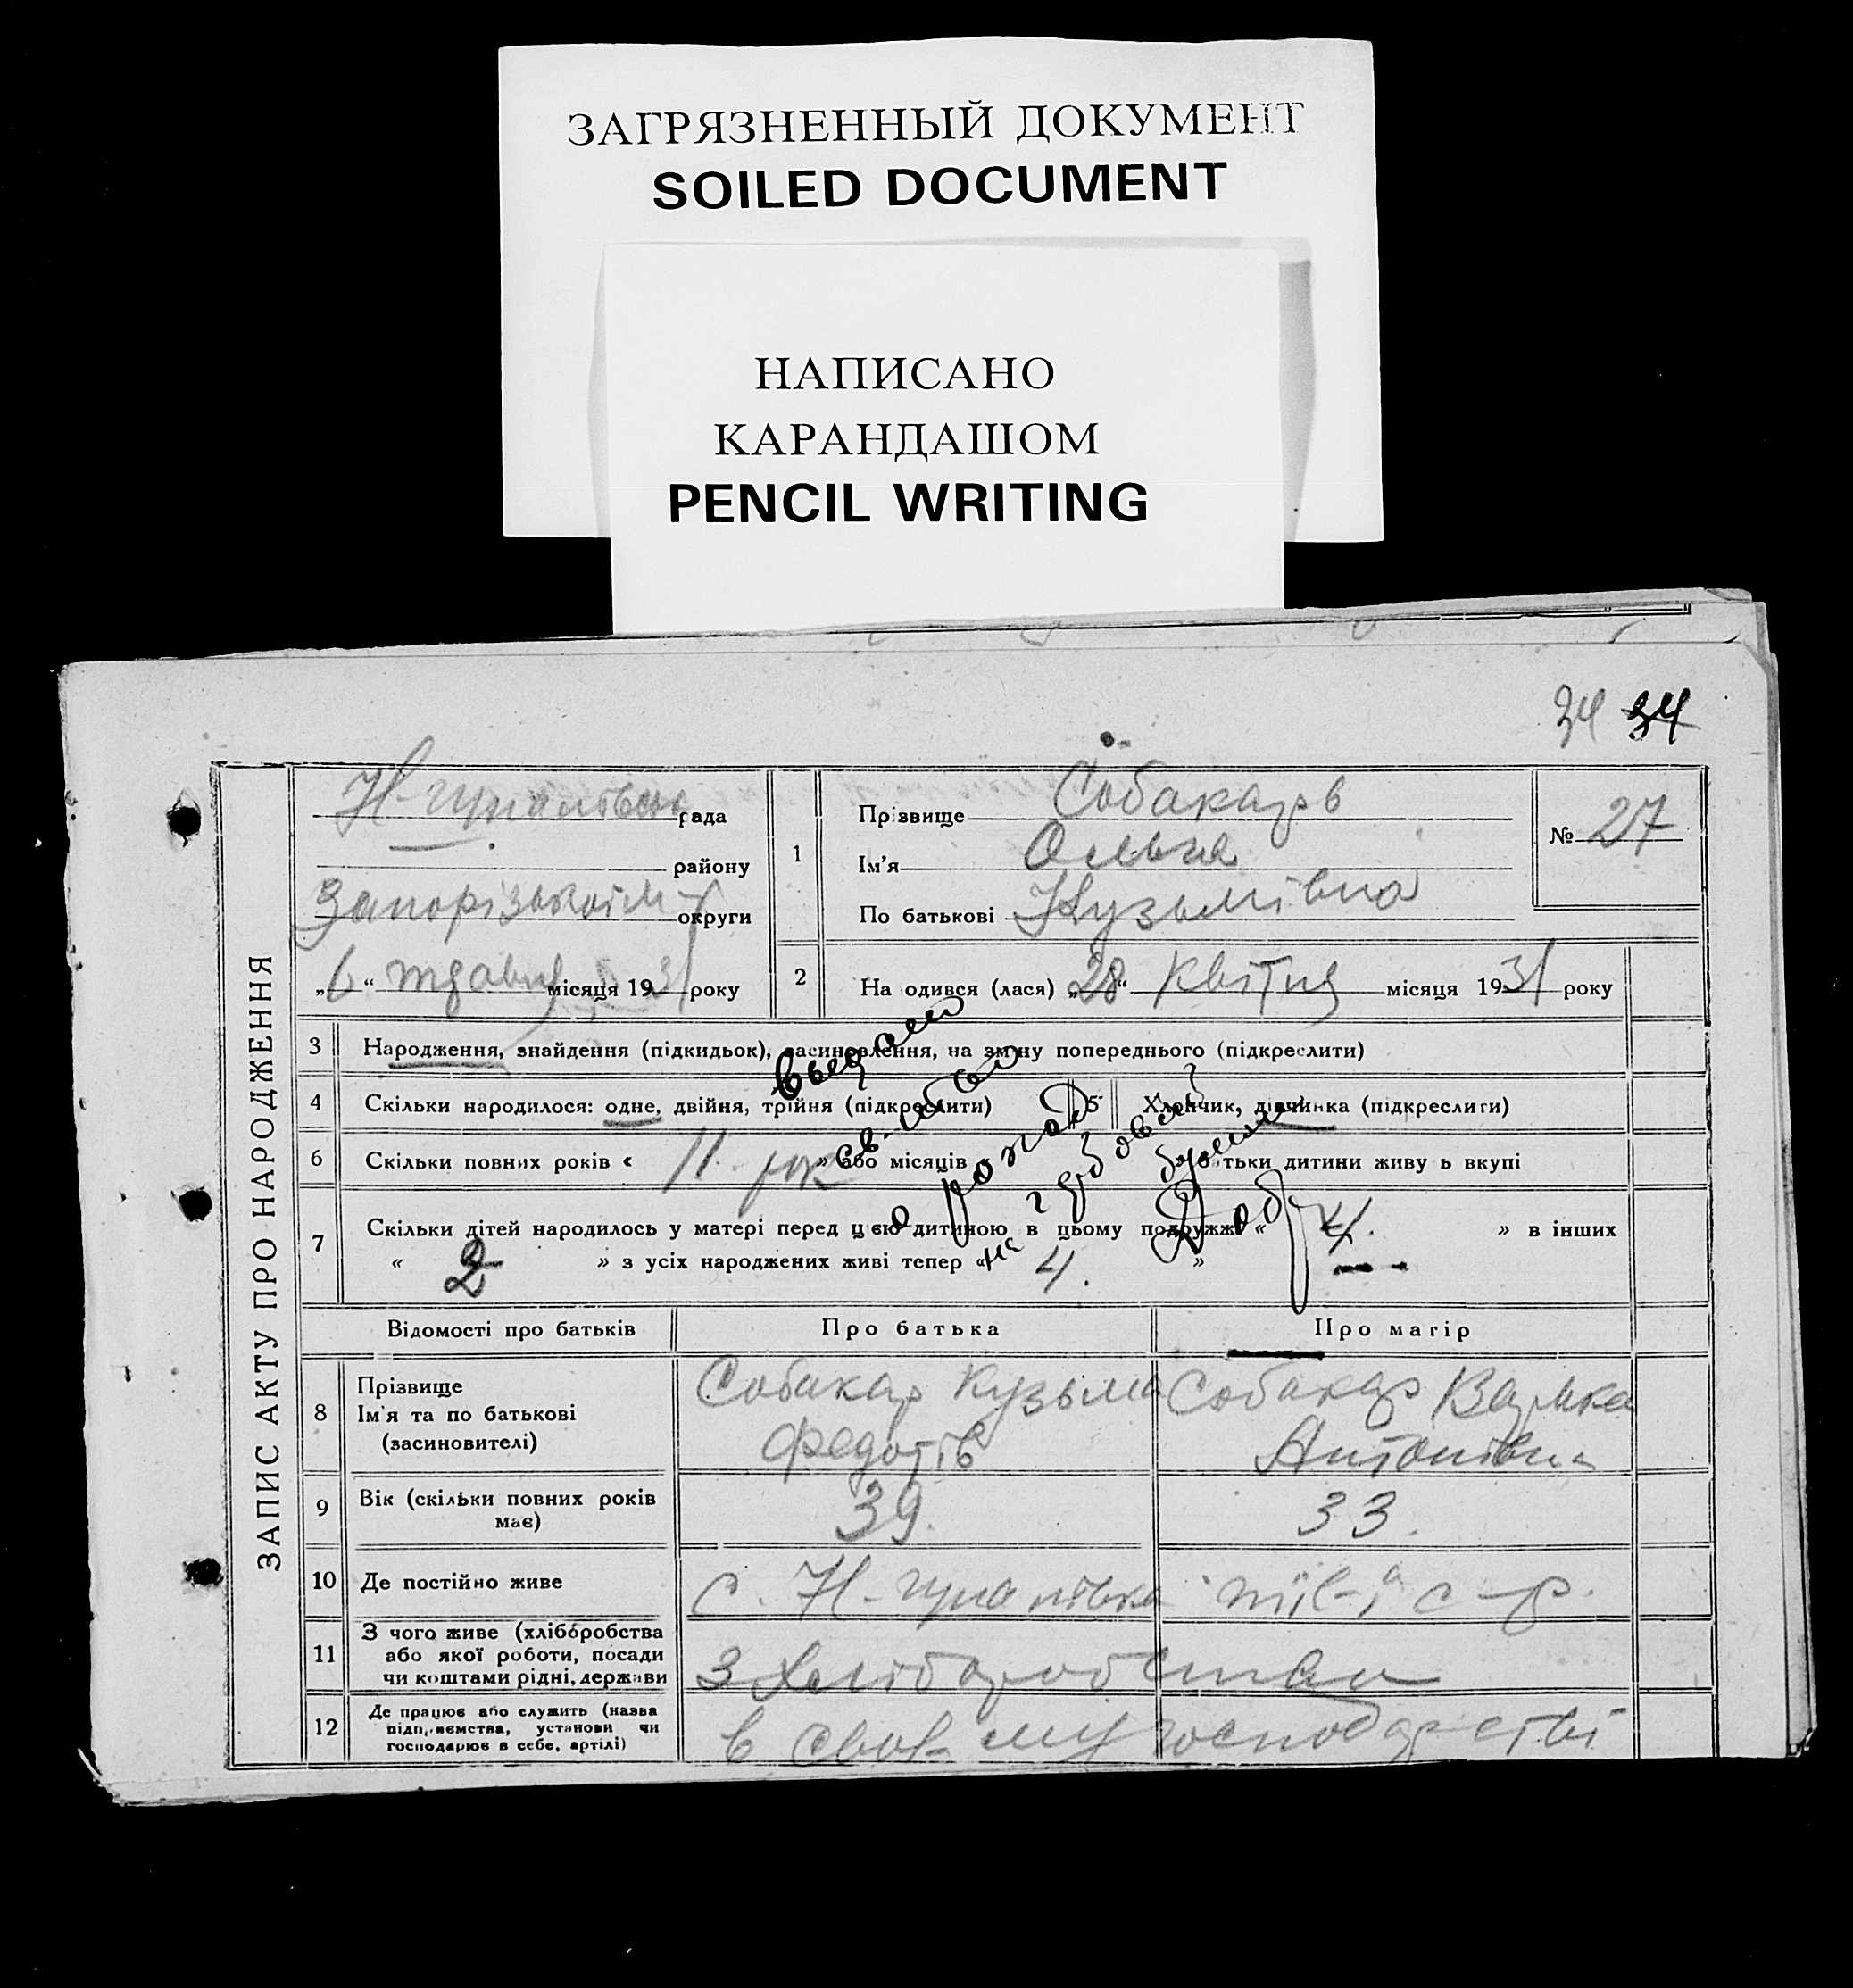 ЗАГРЯЗНЕННЫЙ ДОКУМЕНТ
SOILED DOCUMENT
НАПИСАНО
КАРАНДАШОМ
PENCIL WRITING
34 34
ЗАПИС АКТУ ПРО НАРОДЖЕННЯ
рада
району
округи
„6“ місяця 1931 року
1
Прізвище Собакарь
Ім'я Ольга
По батькові Кузьмівна
№ 27
2 На одився (лася) „28“ Квітня місяця 1931 року
3 Народження, знайдення (підкидьок), засиновлення, на зміну попереднього (підкреслити)
4 Скільки народилося: одне, двійня, трійня (підкреслити) 5 Хлопчик, дівчинка (підкреслити)
6 Скільки повних років « 11 рок » або місяців тьки дитини живу ь вкупі
7 Скільки дітей народилось у матері перед цією дитиною в цьому подружжі « 4. » в інших
« 2 » з усіх народжених живі тепер « 4. »
Відомості про батьків Про батька Про матір
8 Прізвище
Ім'я та по батькові
(засиновителі)
Собакар Кузьма
Федотів
Собакар
Антонівна
9 Вік (скільки повних років
має)
39. 33.
10 Де постійно живе с.
11 З чого живе (хліборобства
або якої роботи, посади
чи коштами рідні, держави
з Хліборобства
12 Де працює або служить (назва
підприємства, установи чи
господарює в себе, артілі)
в свое-му господарстві